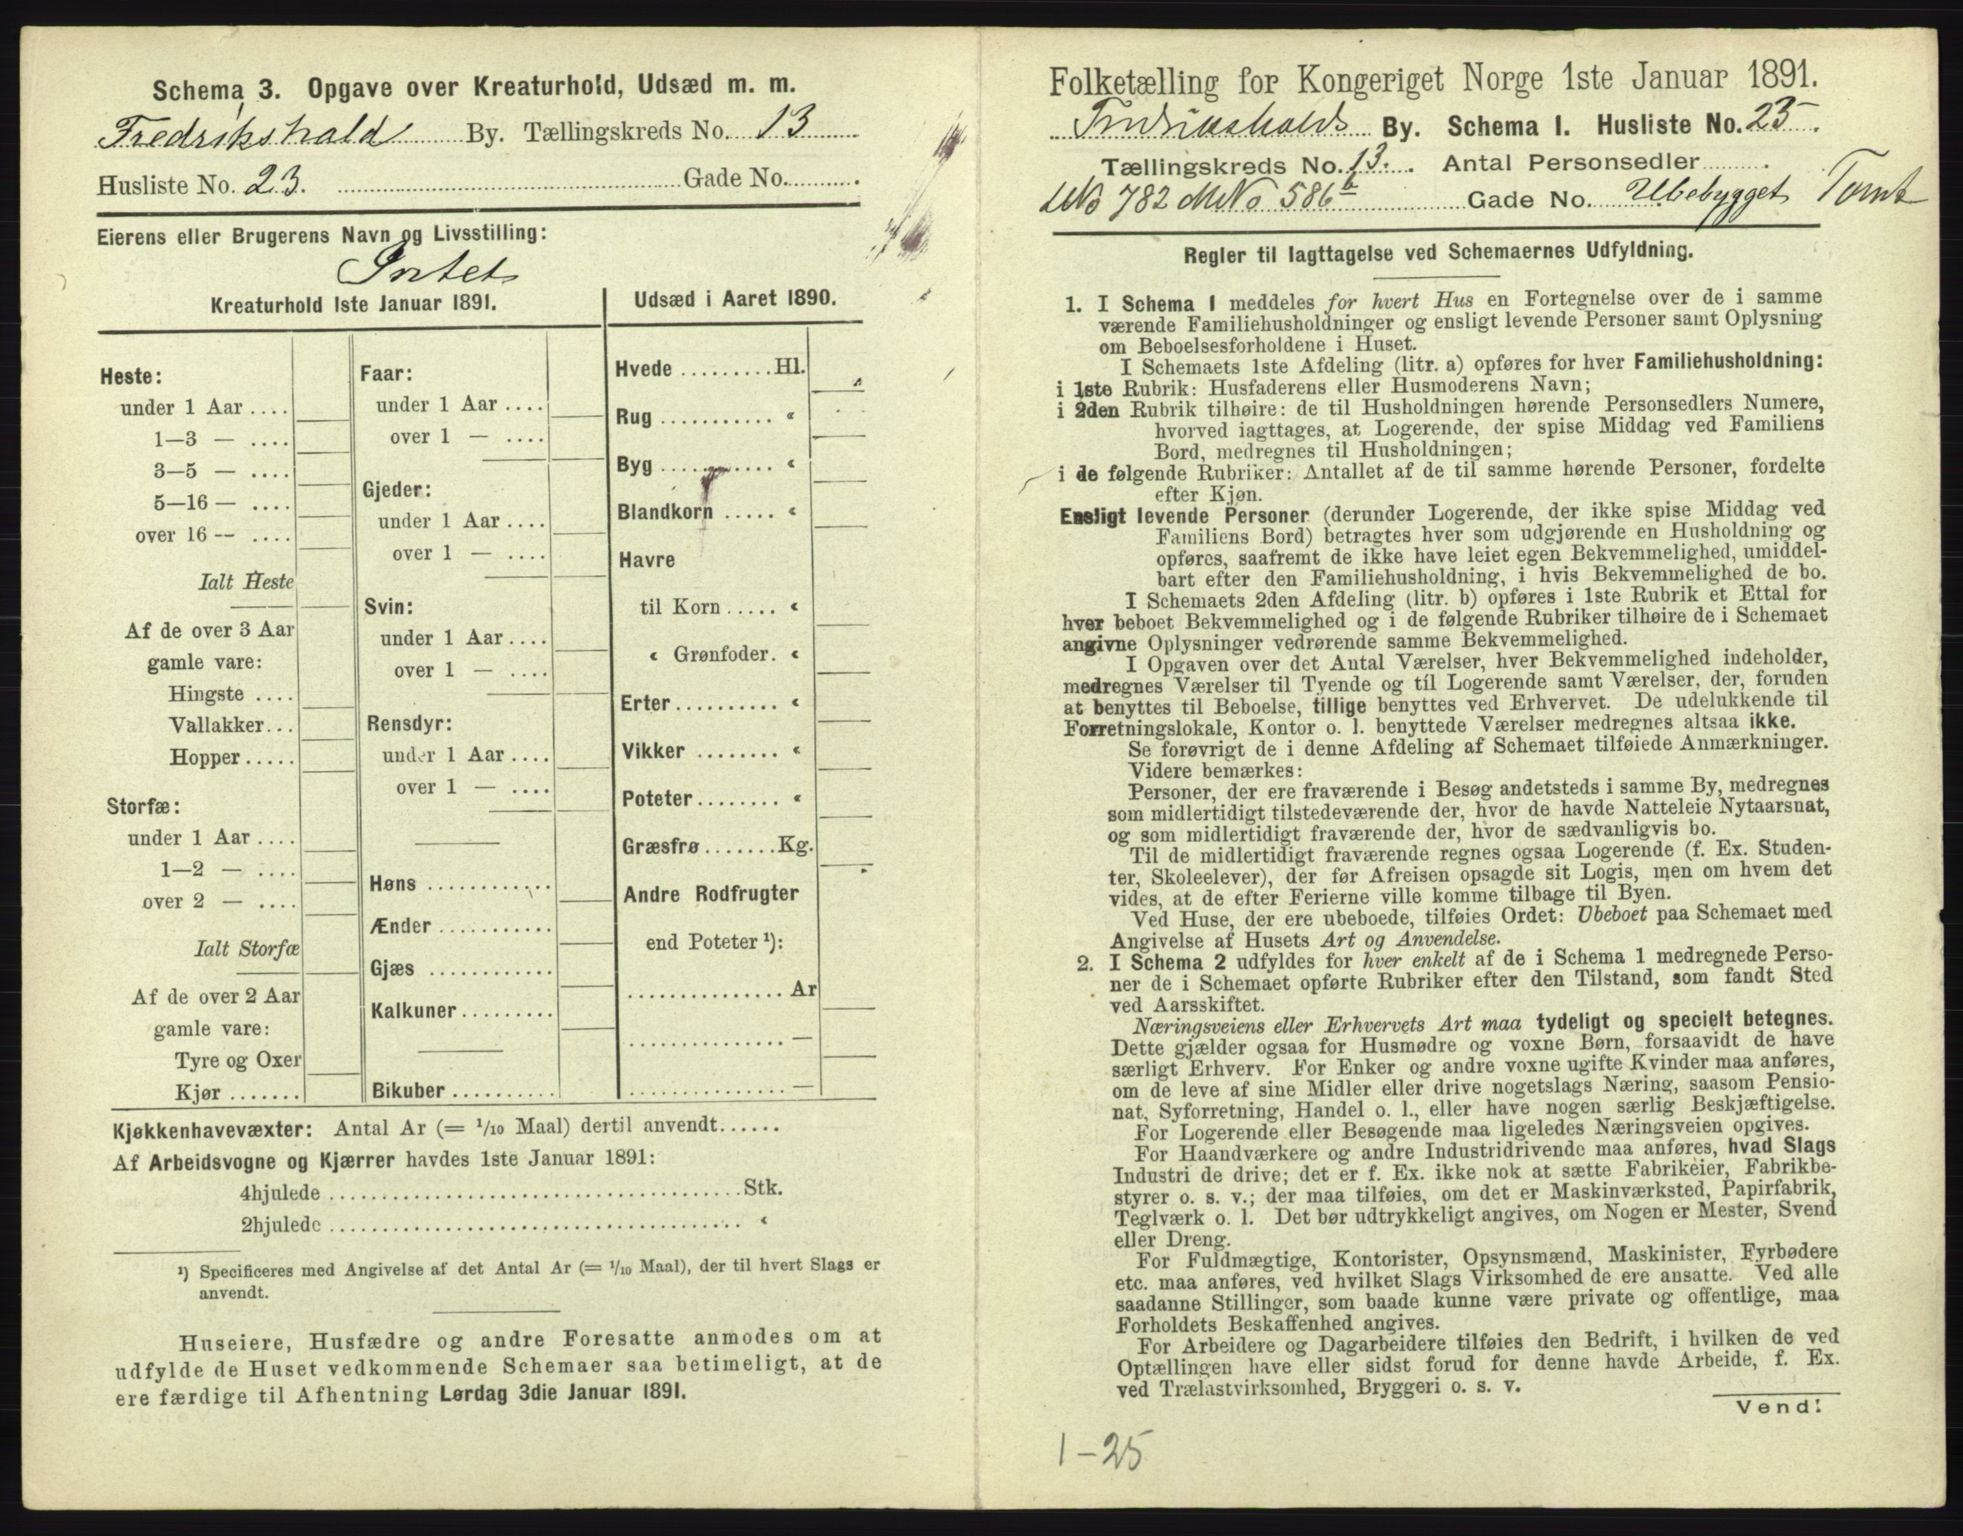 Schema 3. Opgave over Kreaturhold, Udsæd m. m.
Fredrikshald By. Tællingskreds No. 13
Husliste No. 23. Gade No.
Eierens eller Brugerens Navn og Livsstilling:
Intet
Kreaturhold 1ste Januar 1891.
Heste:
under 1 Aar
1—3 —
3—5 —
5—16 —
over 16 —
Ialt Heste
Af de over 3 Aar
gamle vare:
Hingste
Vallakker
Hopper
Storfæ:
under 1 Aar
1—2 —
over 2 —
Ialt Storfæ
Af de over 2 Aar
gamle vare:
Tyre og Oxer
Kjør
Faar:
under 1 Aar
over 1 —
Gjeder:
under 1 Aar
over 1 —
Svin:
under 1 Aar
over 1 —
Rensdyr:
under 1 Aar
over 1 —
Høns
Ænder
Gjæs
Kalkuner
Bikuber
Udsæd i Aaret 1890.
Hvede Hl.
Rug «
Byg «
Blandkorn «
Havre
til Korn «
« Grønfoder. «
Erter «
Vikker «
Poteter «
Græsfrø Kg.
Andre Rodfrugter
end Poteter ¹):
Ar
—
—
Kjøkkenhavevæxter: Antal Ar (= 1/10 Maal) dertil anvendt
Af Arbeidsvogne og Kjærrer havdes 1ste Januar 1891:
4hjulede Stk.
2hjulede «
¹) Specificeres med Angivelse af det Antal Ar (= 1/10 Maal), der til hvert Slags er
anvendt.
Huseiere, Husfædre og andre Foresatte anmodes om at
udfylde de Huset vedkommende Schemaer saa betimeligt, at de
ere færdige til Afhentning Lørdag 3die Januar 1891.
Folketælling for Kongeriget Norge 1ste Januar 1891.
Fredrikshalds By. Schema 1. Husliste No. 23.
Tællingskreds No. 13. Antal Personsedler .
LNo 782 MNo 586b Gade No. Ubebygget Tomt
Regler til Iagttagelse ved Schemaernes Udfyldning.
1. I Schema 1 meddeles for hvert Hus en Fortegnelse over de i samme
værende Familiehusholdninger og ensligt levende Personer samt Oplysning
om Beboelsesforholdene i Huset.
I Schemaets 1ste Afdeling (litr. a) opføres for hver Familiehusholdning:
i 1ste Rubrik: Husfaderens eller Husmoderens Navn;
i 2den Rubrik tilhøire: de til Husholdningen hørende Personsedlers Numere,
hvorved iagttages, at Logerende, der spise Middag ved Familiens
Bord, medregnes til Husholdningen;
i de følgende Rubriker: Antallet af de til samme hørende Personer, fordelte
efter Kjøn.
Ensligt levende Personer (derunder Logerende, der ikke spise Middag ved
Familiens Bord) betragtes hver som udgjørende en Husholdning og
opføres, saafremt de ikke have leiet egen Bekvemmelighed, umiddel-
bart efter den Familiehusholdning, i hvis Bekvemmelighed de bo.
I Schemaets 2den Afdeling (litr. b) opføres i 1ste Rubrik et Ettal for
hver beboet Bekvemmelighed og i de følgende Rubriker tilhøire de i Schemaet
angivne Oplysninger vedrørende samme Bekvemmelighed.
I Opgaven over det Antal Værelser, hver Bekvemmelighed indeholder,
medregnes Værelser til Tyende og til Logerende samt Værelser, der, foruden
at benyttes til Beboelse, tillige benyttes ved Erhvervet. De udelukkende til
Forretningslokale, Kontor o. l. benyttede Værelser medregnes altsaa ikke.
Se forøvrigt de i denne Afdeling af Schemaet tilføiede Anmærkninger.
Videre bemærkes:
Personer, der ere fraværende i Besøg andetsteds i samme By, medregnes
som midlertidigt tilstedeværende der, hvor de havde Natteleie Nytaarsnat,
og som midlertidigt fraværende der, hvor de sædvanligvis bo.
Til de midlertidigt fraværende regnes ogsaa Logerende (f. Ex. Studen-
ter, Skoleelever), der før Afreisen opsagde sit Logis, men om hvem det
vides, at de efter Ferierne ville komme tilbage til Byen.
Ved Huse, der ere ubeboede, tilføies Ordet: Ubeboet paa Schemaet med
Angivelse af Husets Art og Anvendelse.
2. I Schema 2 udfyldes for hver enkelt af de i Schema 1 medregnede Perso-
ner de i Schemaet opførte Rubriker efter den Tilstand, som fandt Sted
ved Aarsskiftet.
Næringsveiens eller Erhvervets Art maa tydeligt og specielt betegnes.
Dette gjælder ogsaa for Husmødre og voxne Børn, forsaavidt de have
særligt Erhverv. For Enker og andre voxne ugifte Kvinder maa anføres,
om de leve af sine Midler eller drive nogetslags Næring, saasom Pensio-
nat, Syforretning, Handel o. l., eller have nogen særlig Beskjæftigelse.
For Logerende eller Besøgende maa ligeledes Næringsveien opgives.
For Haandværkere og andre Industridrivende maa anføres, hvad Slags
Industri de drive; det er f. Ex. ikke nok at sætte Fabrikeier, Fabrikbe-
styrer o. s. v.; der maa tilføies, om det er Maskinværksted, Papirfabrik,
Teglværk o. l. Det bør udtrykkeligt angives, om Nogen er Mester, Svend
eller Dreng.
For Fuldmægtige, Kontorister, Opsynsmænd, Maskinister, Fyrbødere
etc. maa anføres, ved hvilket Slags Virksomhed de ere ansatte. Ved alle
saadanne Stillinger, som baade kunne være private og offentlige, maa
Forholdets Beskaffenhed angives.
For Arbeidere og Dagarbeidere tilføies den Bedrift, i hvilken de ved
Optællingen have eller sidst forud for denne havde Arbeide, f. Ex.
ved Trælastvirksomhed, Bryggeri o. s. v.
Vend!
1-25